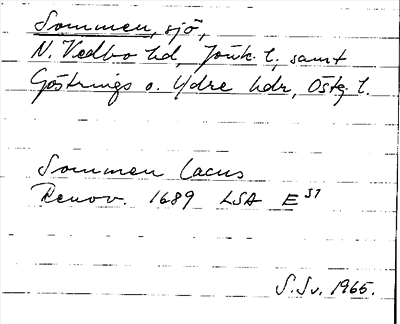 Sommen, sjö,
N. Vedbo hd, Jönk. l., samt
Göstrings o. Ydre hdr, Östg. l.
Sommen Lacus
Renov. 1689 LSA E 57
S.Sv. 1965.